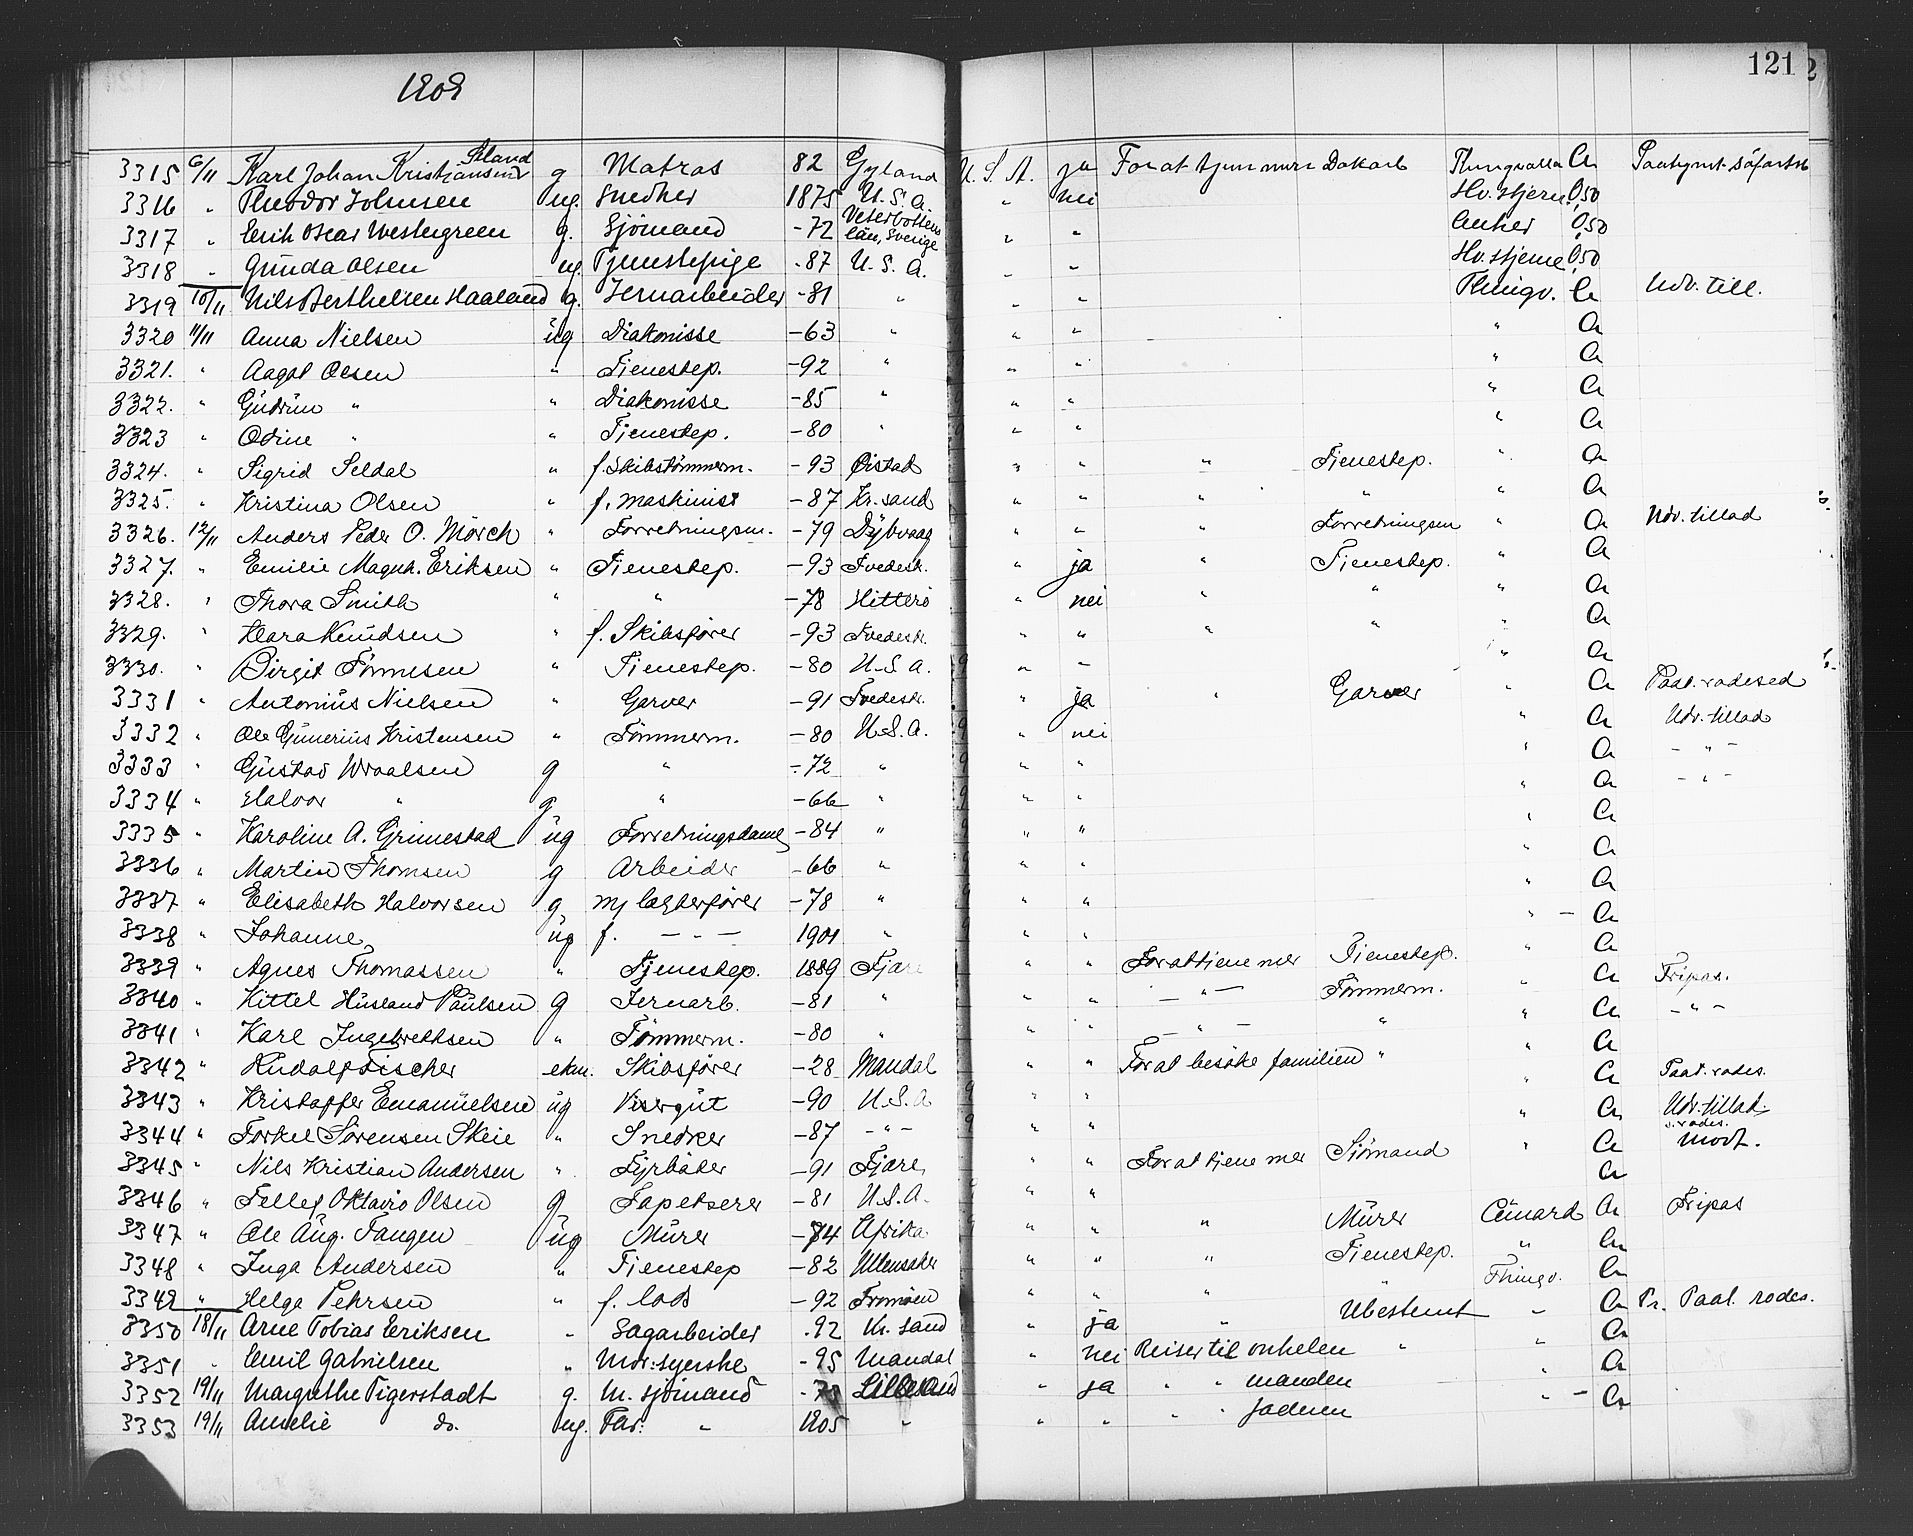 121
1909
3315 6/11 Karl Johan Kristiansen Siland g Matros 82 Gyland U.S.A. ja For at tjene mere Thingvalla Cr
3316 " Theodor Johnsen ug. Snedker 1875 U.S.A. " nei Hv. stjern 0,50
3317 " Erik Oscar Westergreen g. Sjömand -72 Vesterbottens län, Sverige " " Anker 0,50
3318 " Gunda Olsen ug. Tjenestepige -87 U.S.A. " " Hv. stjerne 0,50
3319 10/11 Nils Berthelsen Haaland g. Jernarbeider -81 " " " Thingv. Cr Udv. till.
3320 11/11 Anna Nielsen ug Diakonisse -63 " " " " Cr
3321. " Aagot Olsen " Tienestep. -92 " " " " Cr
3322. " Gudrun " " Diakonisse -85 " " " " Cr
3323 " Odine " " Tienestep. -80 " " " " Cr
3324. " Sigrid Seldal " f. Skibstömmerm. -93 Öistad " " " Tienestep. " Cr
3325. " Kristina Olsen " f. maskinist -87 Kr.sand " " " " " Cr
3326. 12/11 Anders Peder O. Mörch " Forretningsm. -79 Dybvaag " " Forretningsm " Cr Udv. tillad
3327. " Emilie Magnh. Eriksen " Tienestep. -93 Tvedestr. " ja " Tienestep. " Cr
3328. " Thora Smith " " -78 Hitterö " nei " " " Cr
3329. " Klara Knudsen " f. Skibsförer -93 Tvedestr. " " " " " Cr
3330. " Birgit Tönnesen " Tienestep. -80 U.S.A. " - " Cr
3331 " Antonius Nielsen " Garver -91 Tvedestr. " ja " Garver " Cr Paat. rodesed
3332 " Ole Gunerius Kristensen " Tömmerm. -80 U.S.A. " nei " Cr Udv. tillad
3333 " Gustav Wraalsen g " -72 " " " " Cr - " -
3334 " Halvor " g " -66 " " " " Cr - " -
3335 " Karoline A. Grimestad ug Forretningsdame -84 " " " " Cr
3336 " Martin Thomsen g Arbeider -66 " " " " Cr
3337 " Elisabeth Halvorsen g m/ lægterförer -78 " " " " Cr
3338 " Johanne " ug f. - " - 1901 " " " " - Cr
3339 " Agnes Thomassen " Tjenestep. 1889 Fjære " " For at tjene mer Tienestep. " Cr
3340 " Kittel Husland Paulsen g Jernarb. -81 " " " - " - Tömmerm. " Cr Fripas.
3341 " Karl Ingebrethsen " Tömmerm. -80 " " " - " - " " Cr - " -
3342 " Rudolf Fischer ekm. Skibsförer -28 Mandal " " For at besöke familien " " Cr
3343 " Kristoffer Emanuelsen ug Visergut -90 U.S.A " " " Cr Paat. rodes.
3344 " Torkel Sörensen Skeie " Snedker -87 - " - " " " Cr Udv. tillad
3345 " Nils Kristian Andersen " Fyrböter -91 Fjære " " For at tjene mer Sjömand " Cr
3346 " Tellef Oktavio Olsen g Tapetserer -81 U.S.A. " " Cr
3347 " Ole Aug. Tangen ug Murer -74 Afrika " " " Murer Cunard Cr Fripas
3348 " Inga Andersen " Tienestep -82 Ullensaker " " " Tienestep. " Cr
3349 " Helga Pehrsen " f. Lods -92 Tromöen " " " " Thingv. Cr
3350 18/11 Arne Tobias Eriksen " Sagarbeider -92 Kr. sand " ja " Ubestemt " Cr Pr. Paat. rodes.
3351 " Emil Gabrielsen " -95 Mandal " nei Reiser til onkelen " " Cr
3352 19/11 Margrethe Tigerstadt g. M. sjömand Lillesand " ja " " manden " Cr
3353 19/11 Amelie do. ug. Far: " 1905 " " " " " faderen " - Cr